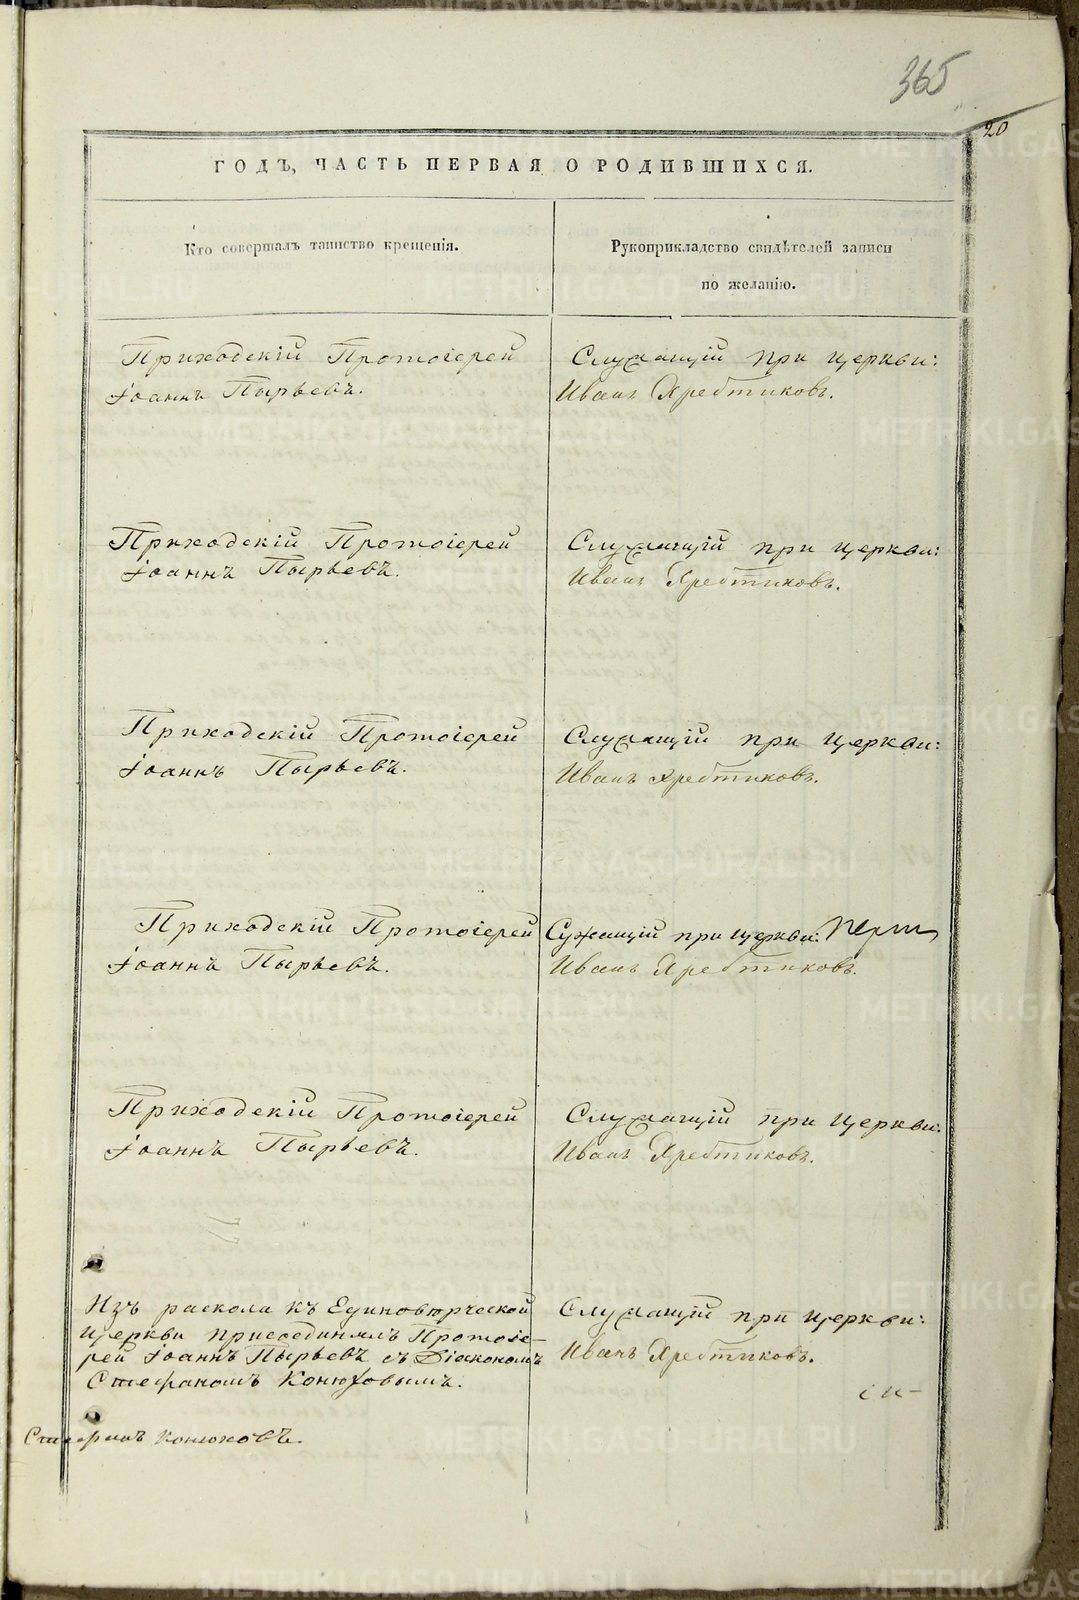 365
20
ГОДЪ, ЧАСТЬ ПЕРВАЯ О РОДИВШИХСЯ.
Кто совершалъ таинство крещенія.
Рукоприкладство свидѣтелей записи
по желанію.
Приходскій Протоіерей
Іоаннъ Пырьевъ.
Служащій при церкви:
Иванъ Ярбтиковъ.
Приходскій Протоіерей
Іоаннъ Пырьевъ.
Служащій при церкви:
Иванъ
Приходскій Протоіерей
Іоаннъ Пырьевъ.
Служащій при церкви:
Иванъ
Приходскій Протоіерей
Іоаннъ Пырьевъ.
Сужащій при церкви:
Иванъ
Приходскій Протоіерей
Іоаннъ Пырьевъ.
Служащій при церкви:
Иванъ
Изъ раскола къ Единовѣрческой
церкви присоединялъ Протоіе-
рей Іоаннъ Пырьевъ съ Діакономъ
Стефаномъ Конюховымъ.
Служащій при церкви:
Иванъ
Стефанъ Конюховъ.
METRIKI.GASO-URAL.RU